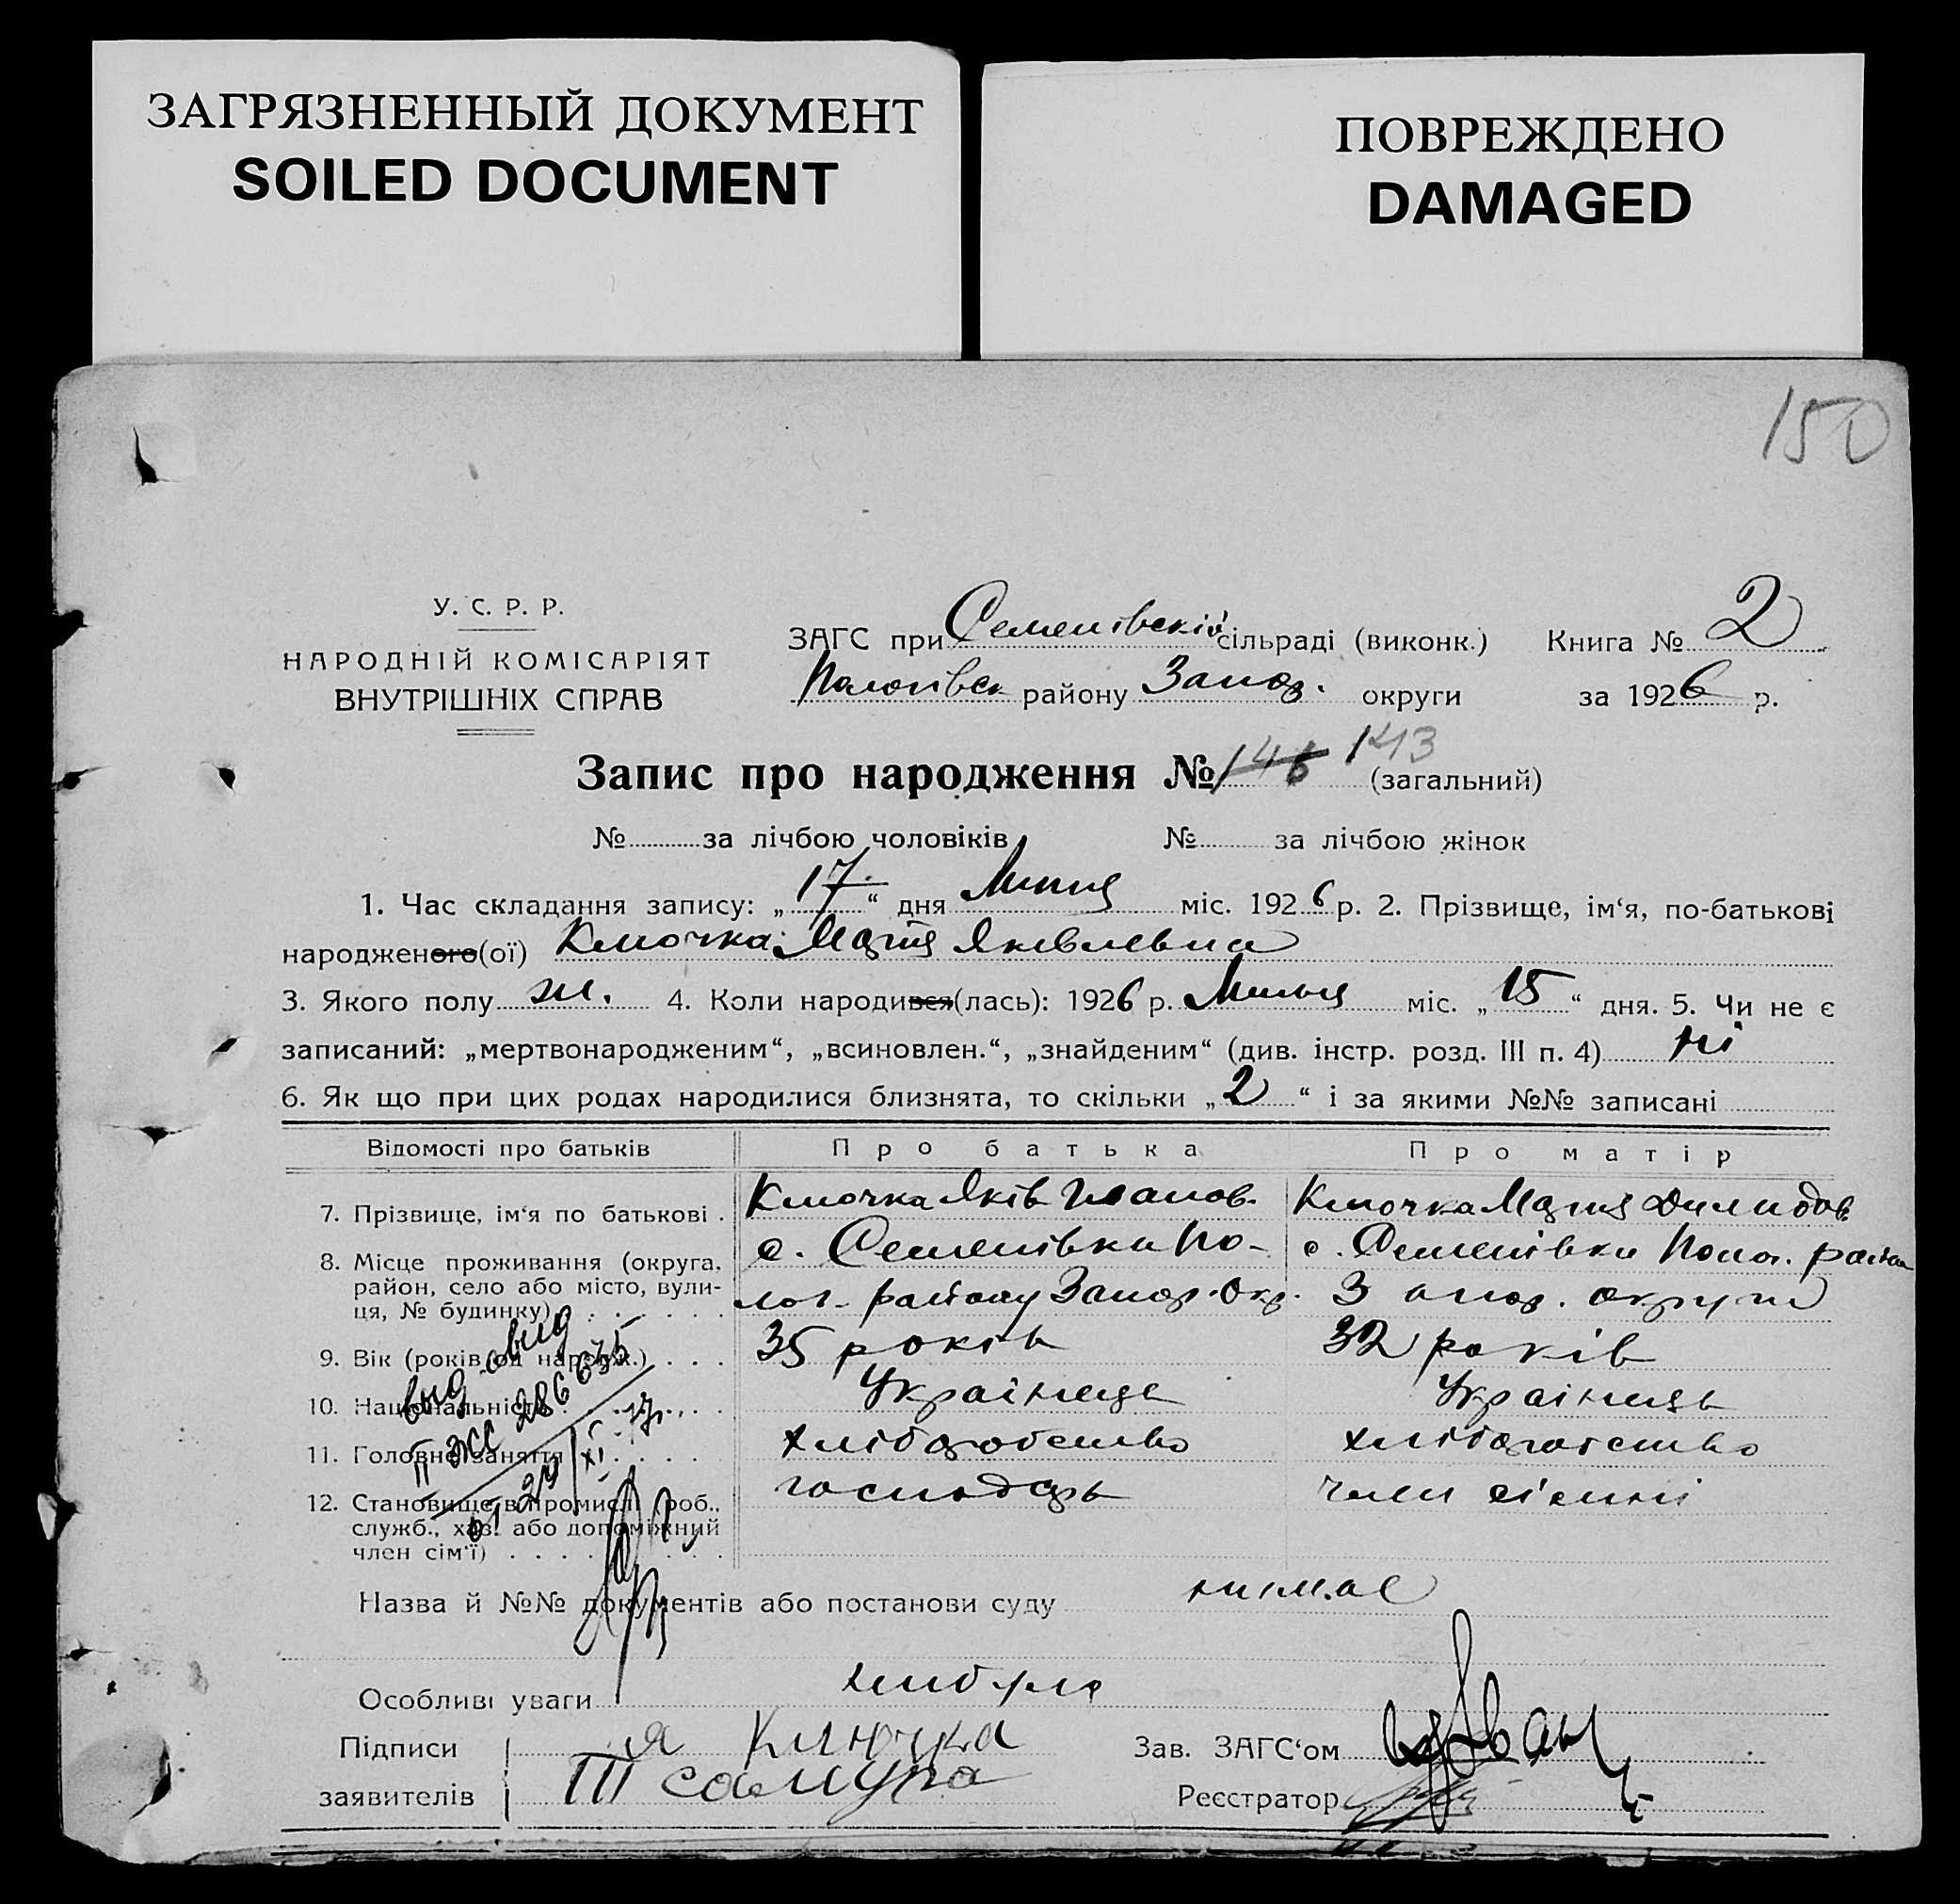 ЗАГРЯЗНЕННЫЙ ДОКУМЕНТ
SOILED DOCUMENT
ПОВРЕЖДЕНО
DAMAGED
150
У. С. Р. Р.
НАРОДНІЙ КОМІСАРІЯТ
ВНУТРІШНІХ СПРАВ
ЗАГС при Семенівскій сільраді (виконк.) Книга № 2
Пологівск району Запор. округи за 1926 р.
Запис про народження № 146 143 (загальний)
№ за лічбою чоловіків № за лічбою жінок
1. Час складання запису: „17“ дня Липця міс. 1926 р. 2. Прізвище, ім‘я, по-батькові
народженого(ої) Ключка Марія Яківлевна
3. Якого полу ж. 4. Коли народився(лась): 1926 р. Липця міс. „15“ дня. 5. Чи не є
записаний: „мертвонародженим“, „всиновлен.“, „знайденим“ (див. інстр. розд. III п. 4) ні
6. Як що при цих родах народилися близнята, то скільки „2“ і за якими №№ записані
Відомості про батьків Про батька Про матір
7. Прізвище, ім‘я по батькові . Ключка Яків Іванов. Ключка Марія Демидов.
8. Місце проживання (округа, с. Семенівки По- с. Семенівки Полог. району
район, село або місто, вули-
ця, № будинку) . . . . . . лог. району Запор. Окр. Запор. округи
9. Вік (років од народж.) . . . 35 років 32 років
10. Національність . . . . . Українець Українець
11. Головне заняття . . . . хліборобство хліборобство
12. Становище в промислі (роб., господарь член сі'ємні
служб., хаз. або допоміжний
член сім‘ї) . . . . . . . . .
выд свид
II ЖС 286635
от 24/XI-
Назва й №№ документів або постанови суду немає
Особливі уваги
Підписи Я Ключка Зав. ЗАГС‘ом
заявителів Реєстратор